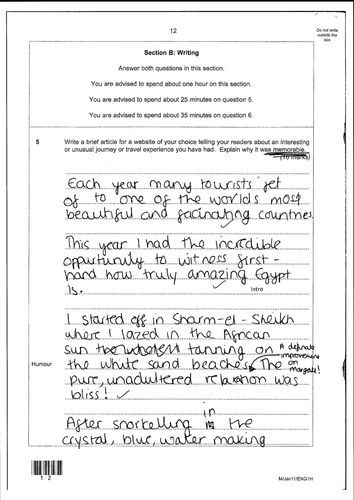 12
Do not write
outside the
box
Section B: Writing
Answer both questions in this section.
You are advised to spend about one hour on this section.
You are advised to spend about 25 minutes on question 5.
You are advised to spend about 35 minutes on question 6.
5 Write a brief article for a website of your choice telling your readers about an interesting
or unusual journey or travel experience you have had. Explain why it was memorable.
(16 marks)
Each year many tourists jet
of to one of the worlds most
beautiful and facinating countries
This year I had the incredible
oppurtunity to witness first-
hand how truly amazing Egypt
is.
Intro
I started off in Sharm-el-Sheikh
where I lazed in the African
sun tanning on
the white sand beaches. The
A definate
improvement
on
margate!
Humour
pure, unadultered relaxtion was
bliss!
After snorkelling in the
crystal, blue, water making
12
M/Jan11/ENG1H